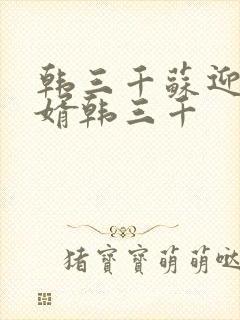 韩三千蘇迎
婿韩三千
猪寶寶萌萌哒